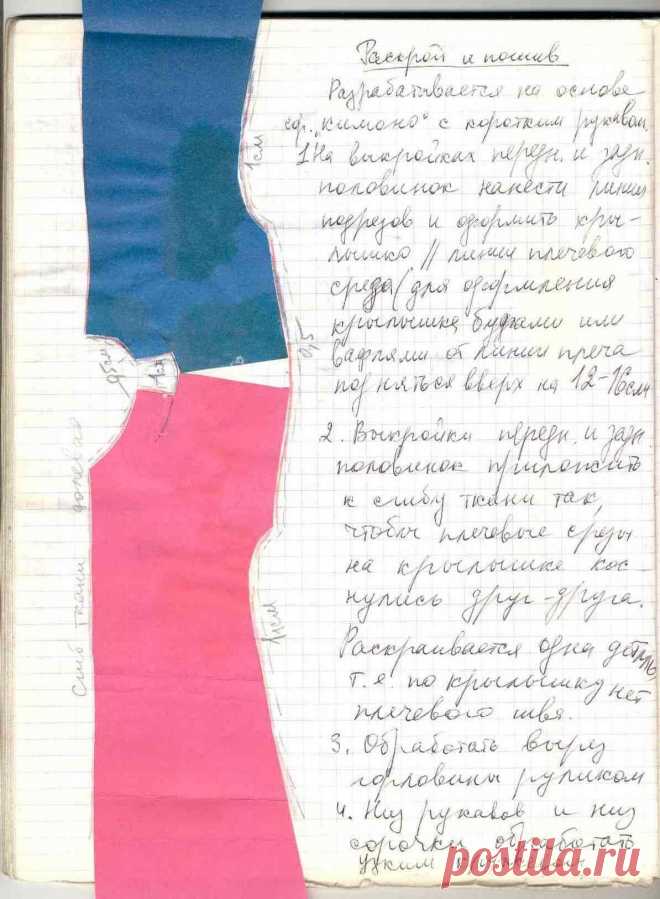 Раскрой и пошив
Разрабатывается на основе
"кимоно" с коротким рукавом
1. На выкройках передн. и задн.
половинок нанести линии
подрезов и оформить кры-
лышко // линии плечевого
среда (для оформления
крылышка буфами или
вафлями от линии плеча
подняться вверх на 12-16см
2. Выкройки передн. и задн.
половинок приложить
к сгибу ткани так,
чтобы плечевые срезы
на крылышке кос-
нулись друг-друга.
Раскраивается одна деталь,
т.е. по крылышку нет
плечевого шва.
3. Обработать вырез
горловины руликом
4. Низ рукавов и низ
сорочки обработать
узким
1см
0,5
0,5см
1см
1см
Сгиб ткани долевая
postila.ru